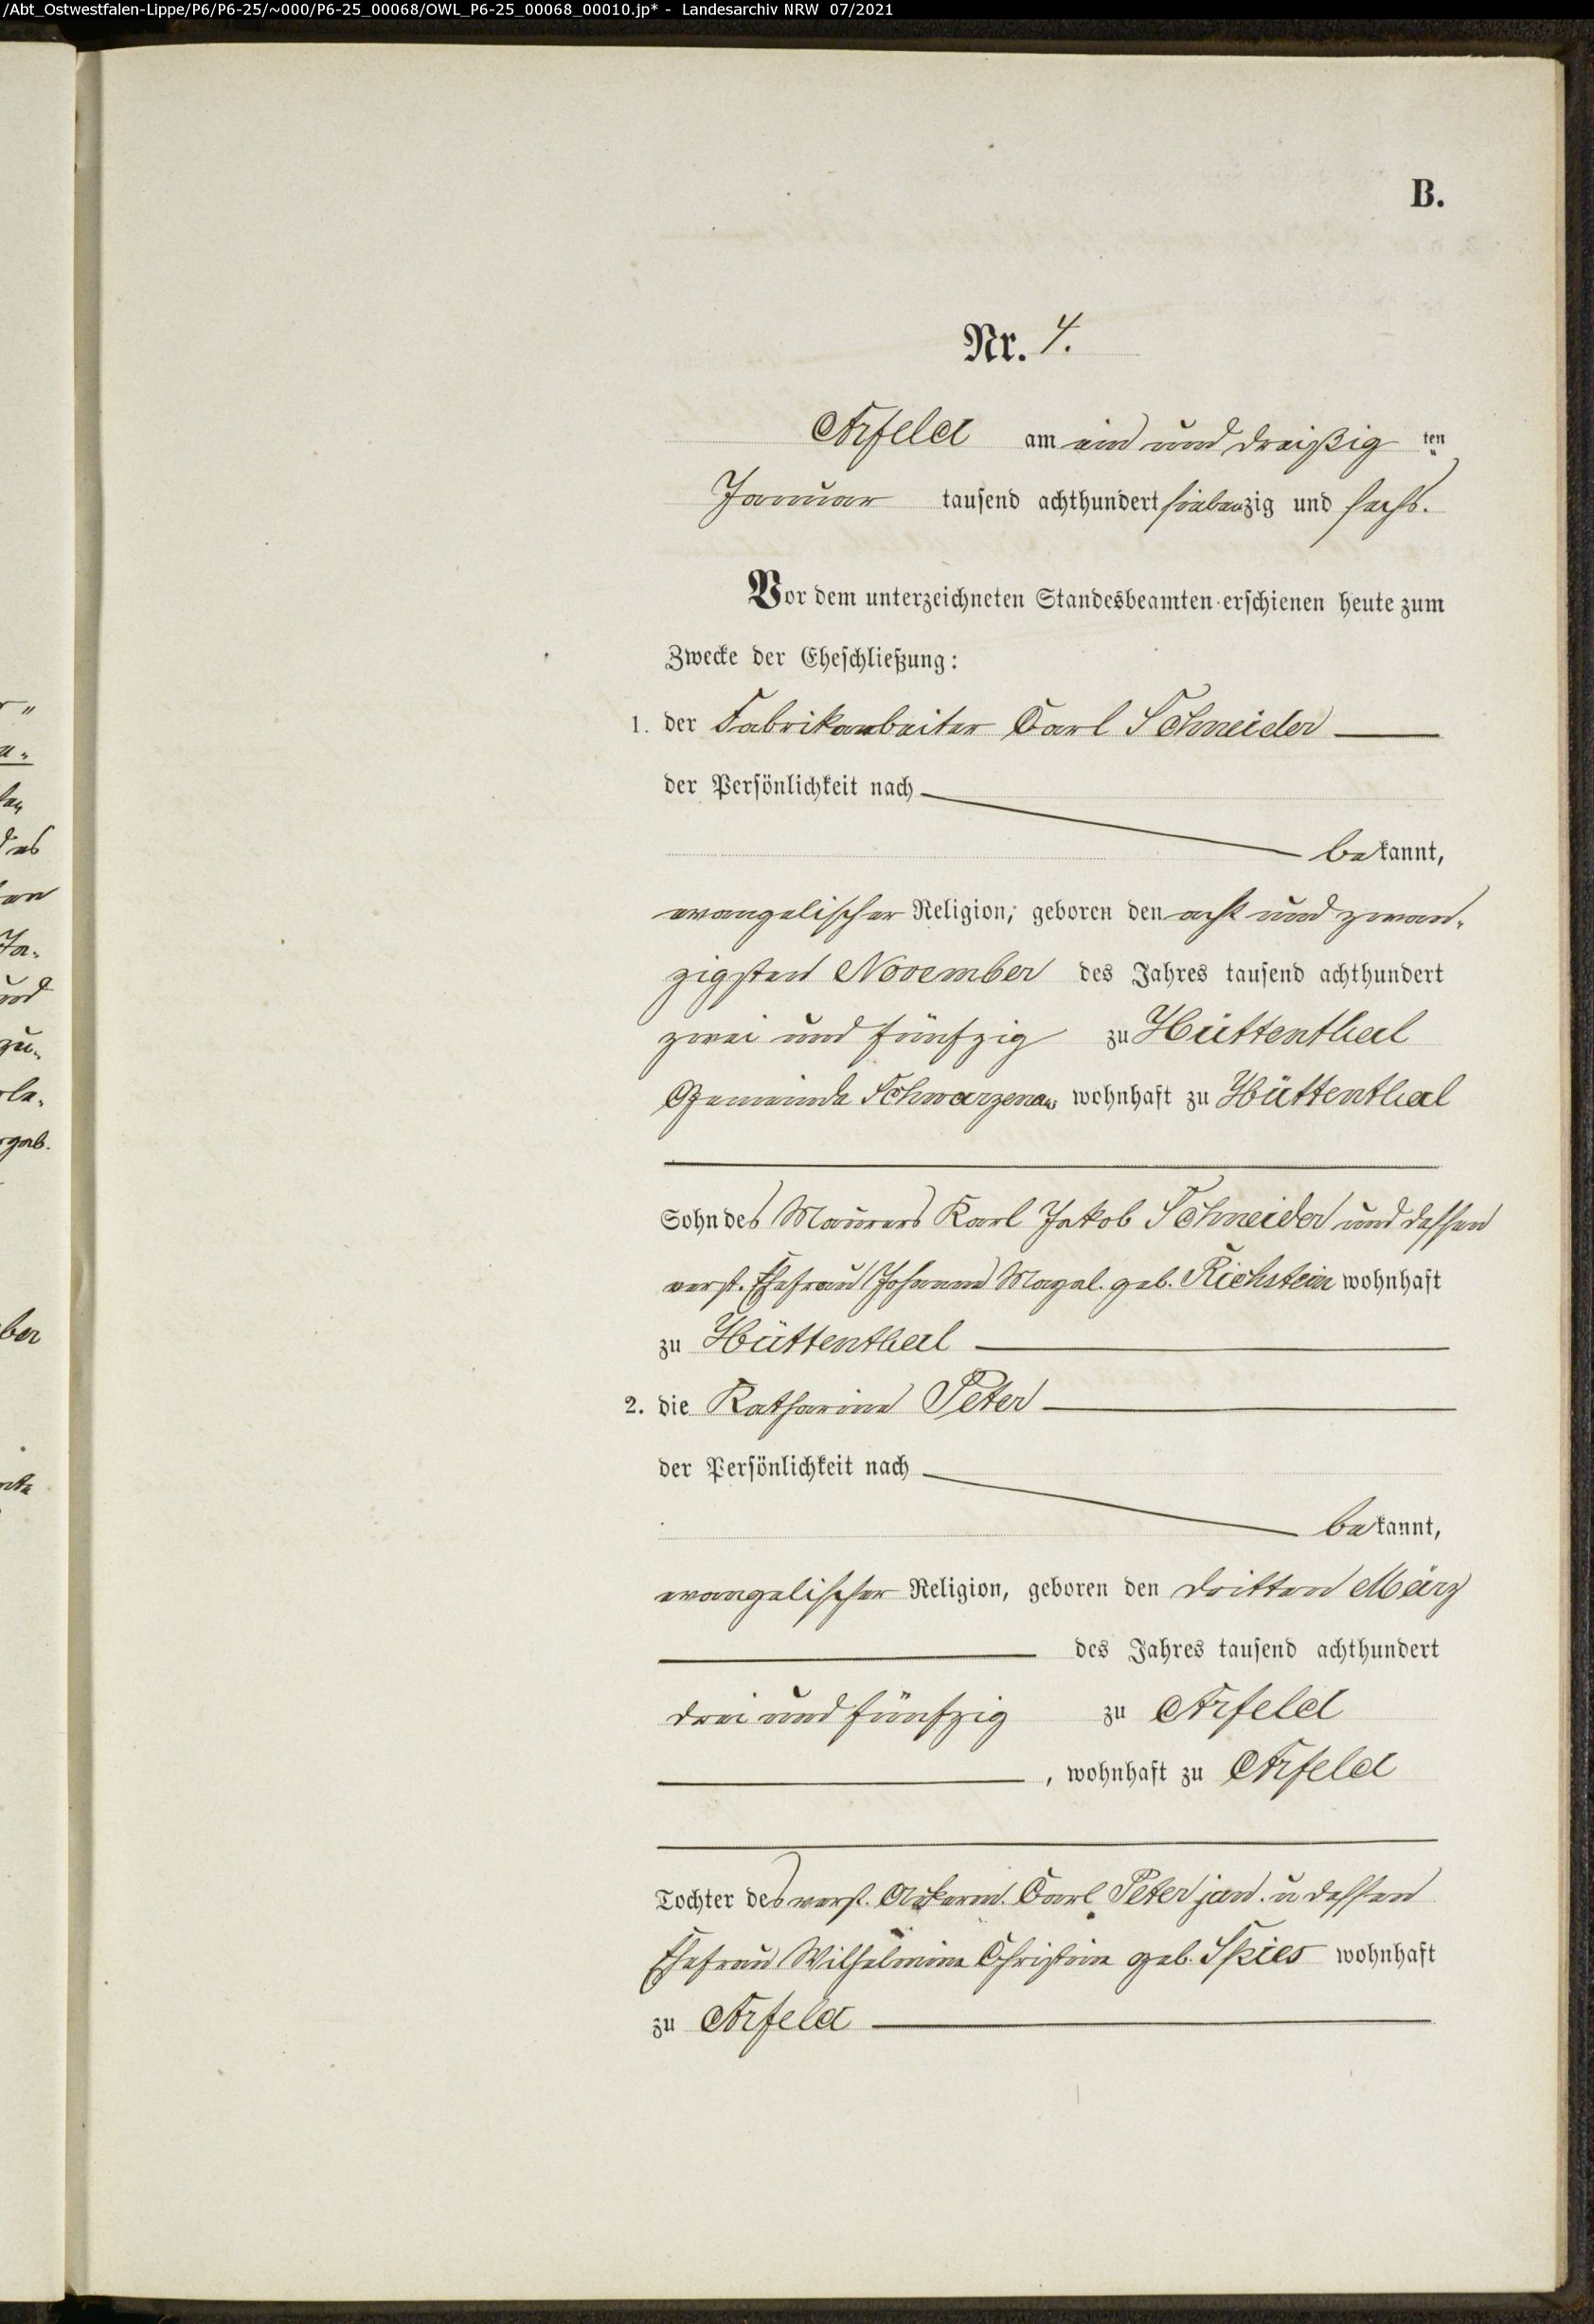 /Abt_Ostwestfalen-Lippe/P6/P6-25/~000/P6-25_00068/OWL_P6-25_00068_00010.jp* - Landesarchiv NRW 07/2021
B.
Nr. 4.
Arfeld am ein und dreißig ten
Januar tausend achthundert siebenzig und sechs.
Vor dem unterzeichneten Standesbeamten erschienen heute zum
Zwecke der Eheschließung:
1. der Fabrikarbeiter Carl Schneider
der Persönlichkeit nach
bekannt,
evangelischer Religion, geboren den acht und zwan-
zigsten November des Jahres tausend achthundert
zwei und fünfzig zu Hüttenthal
Gemeinde Schwarzenau wohnhaft zu Hüttenthal
Sohn des Maurers Karl Jakob Schneider und dessen
verst. Ehefrau Johanna Magal. geb. Richstein wohnhaft
zu Hüttenthal
2. die Katharine Peter
der Persönlichkeit nach
bekannt,
evangelischer Religion, geboren den dritten März
des Jahres tausend achthundert
drei und fünfzig zu Arfeld
, wohnhaft zu Arfeld
Tochter des verst. Ackerm. Carl Peter u dessen
Ehefrau Wilhelmine Christine geb. Spies wohnhaft
zu Arfeld